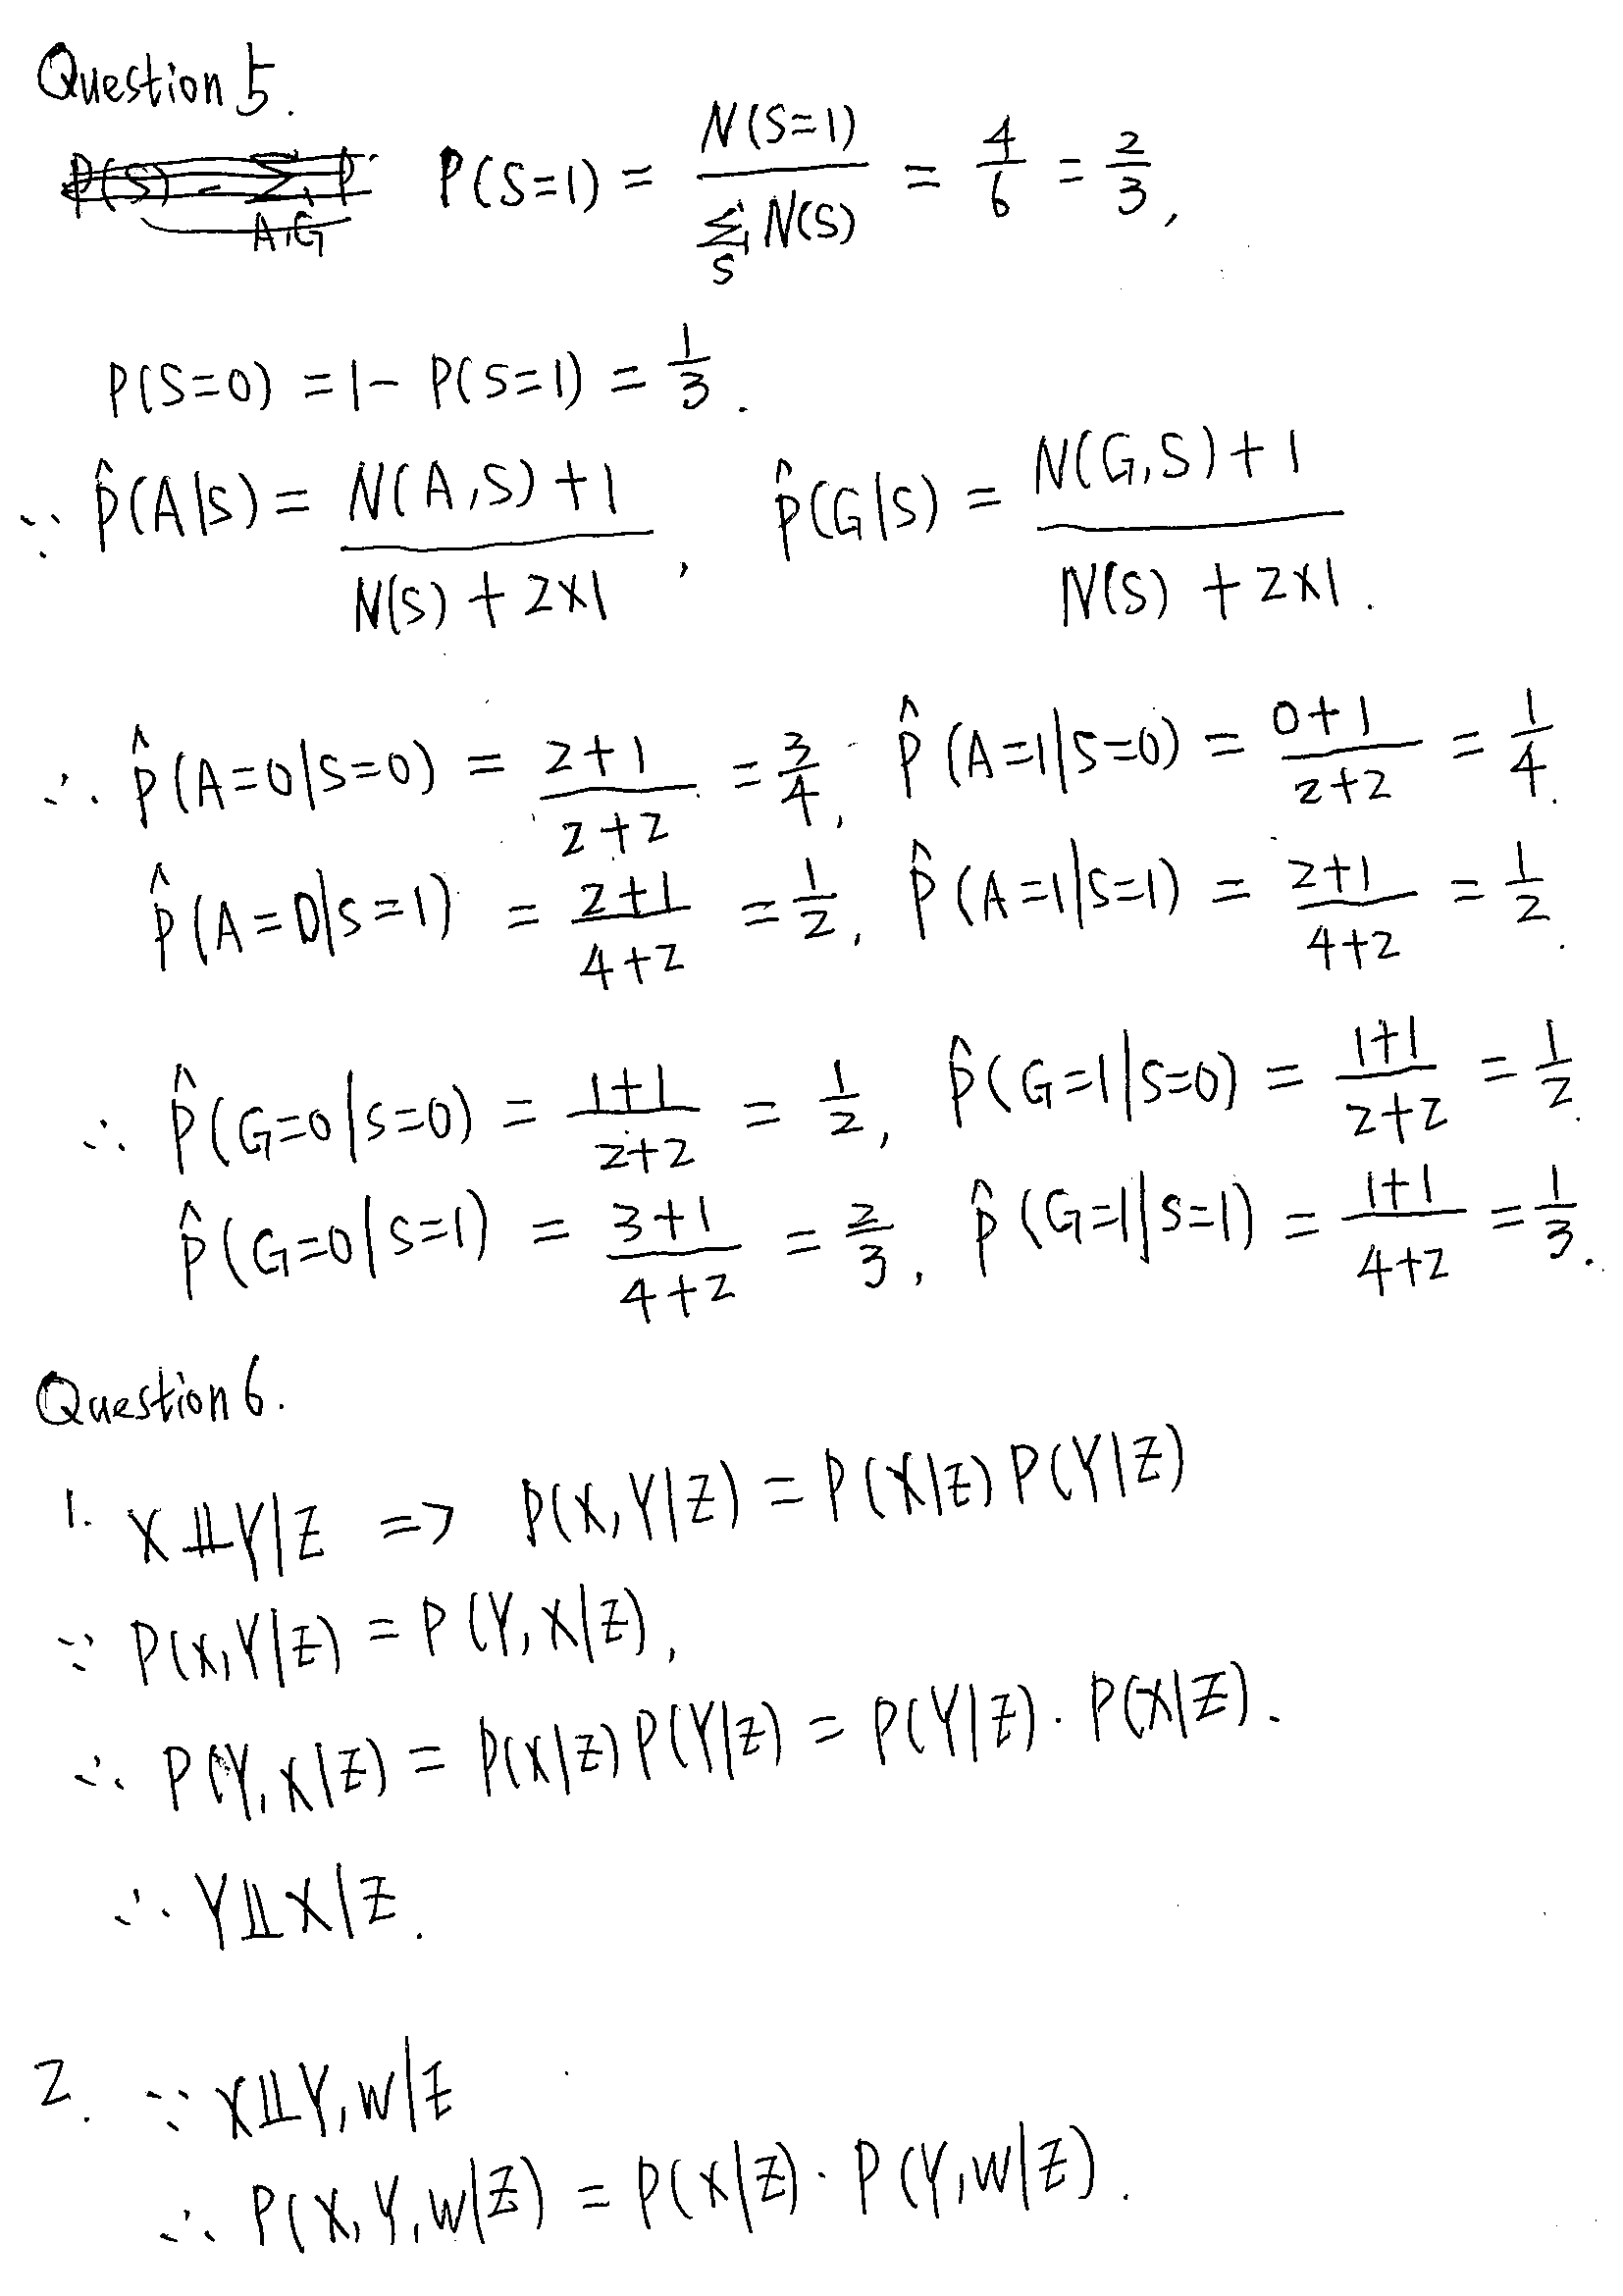 Question 5.
P(S=1) = N(S=1) / ∑_S N(S) = 4/6 = 2/3,
P(S=0) = 1 - P(S=1) = 1/3.
∵ P̂(A|S) = (N(A,S)+1) / (N(S)+2×1), P̂(G|S) = (N(G,S)+1) / (N(S)+2×1).
∴ P̂(A=0|S=0) = (2+1)/(2+2) = 3/4, P̂(A=1|S=0) = (0+1)/(2+2) = 1/4.
P̂(A=0|S=1) = (2+1)/(4+2) = 1/2, P̂(A=1|S=1) = (2+1)/(4+2) = 1/2.
∴ P̂(G=0|S=0) = (1+1)/(2+2) = 1/2, P̂(G=1|S=0) = (1+1)/(2+2) = 1/2.
P̂(G=0|S=1) = (3+1)/(4+2) = 2/3, P̂(G=1|S=1) = (1+1)/(4+2) = 1/3.
Question 6.
1. X⫫Y|Z => P(X,Y|Z) = P(X|Z) P(Y|Z)
∵ P(X,Y|Z) = P(Y,X|Z),
∴ P(Y,X|Z) = P(X|Z) P(Y|Z) = P(Y|Z) · P(X|Z).
∴ Y⫫X|Z.
2. ∵ X⫫Y,W|Z
∴ P(X,Y,W|Z) = P(X|Z) · P(Y,W|Z).